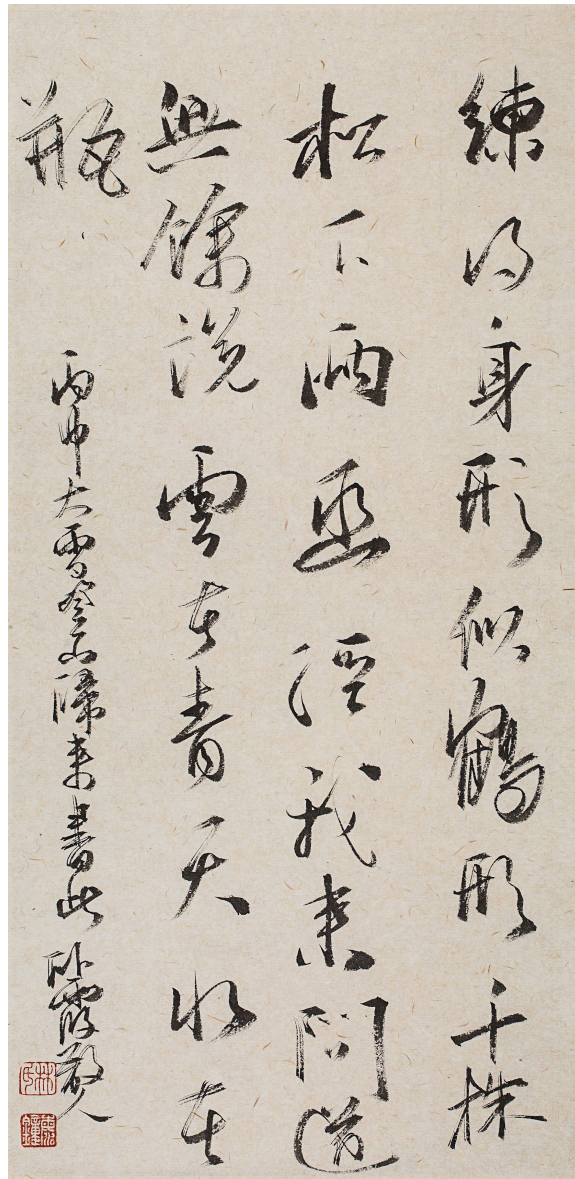 練得身形似鶴形千株
松下兩函經我來問道
無餘說雲在青天水在
瓶
丙申大雪登山歸來書此 臥霞散人